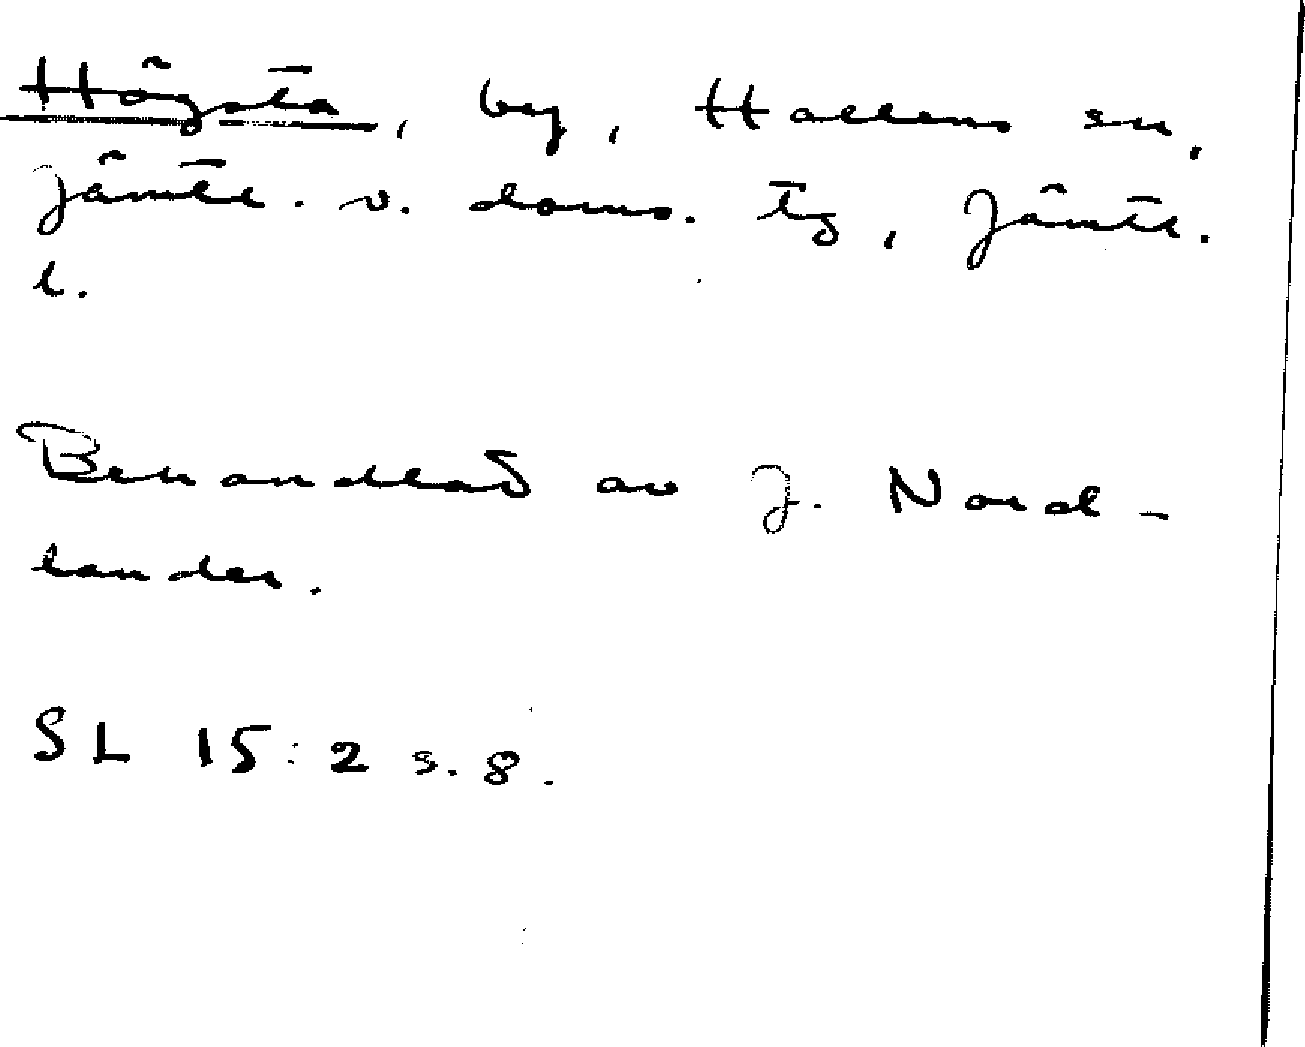 Högsta, by, Hallens sn,
Jämtl. v. doms. tg, Jämtl.
l.
Behandlad av J. Nord-
lander.
SL 15:2 s. 8.